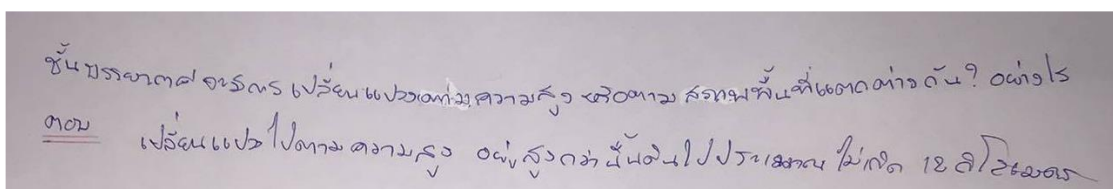 ชั้นบรรยากาศ จะมีการเปลี่ยนแปลงตามความสูง หรือตาม สภาพพื้นที่แตกต่างกัน? อย่างไร
ตอบ เปลี่ยนแปลงไปตามความสูง อยู่สูงกว่าพื้นดินไปประมาณ ไม่เกิด 12 กิโลเมตร